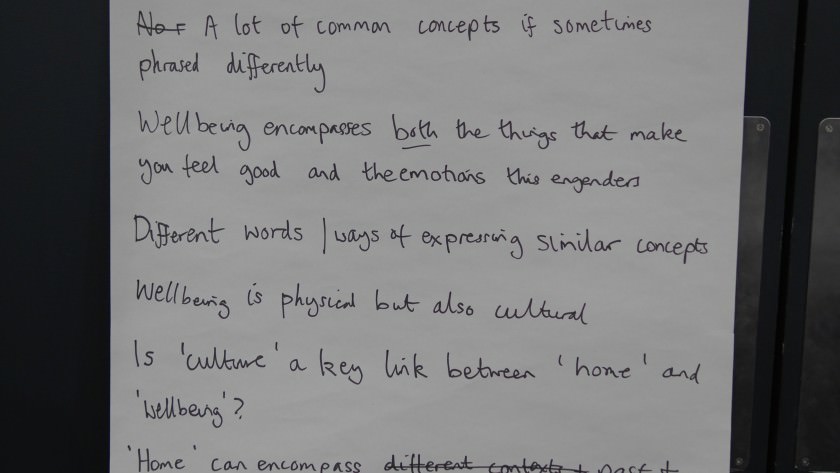 A lot of common concepts if sometimes
phrased differently
Wellbeing encompasses both the things that make
you feel good and the emotions this engenders
Different words / ways of expressing similar concepts
Wellbeing is physical but also cultural
Is 'culture' a key link between 'home' and
'wellbeing'?
'Home' can encompass different contexts + past +